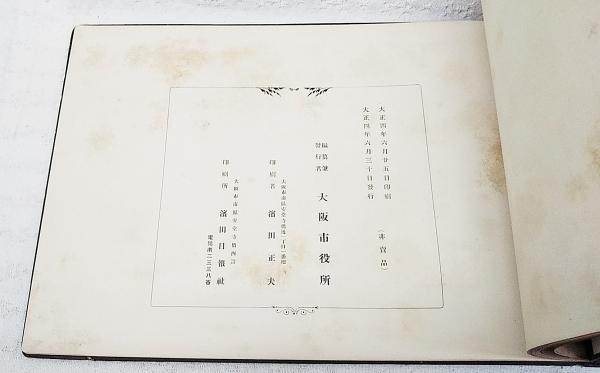 大正四年六月廿五日印刷
大正四年六月三十日發行
(非賣品)
編纂兼
發行者
大阪市役所
大阪市南區安堂寺橋通一丁目一番地
印刷者 濱田正夫
大阪市南區安堂寺橋西詰
印刷所 濱田日報社
電話南二三三八番